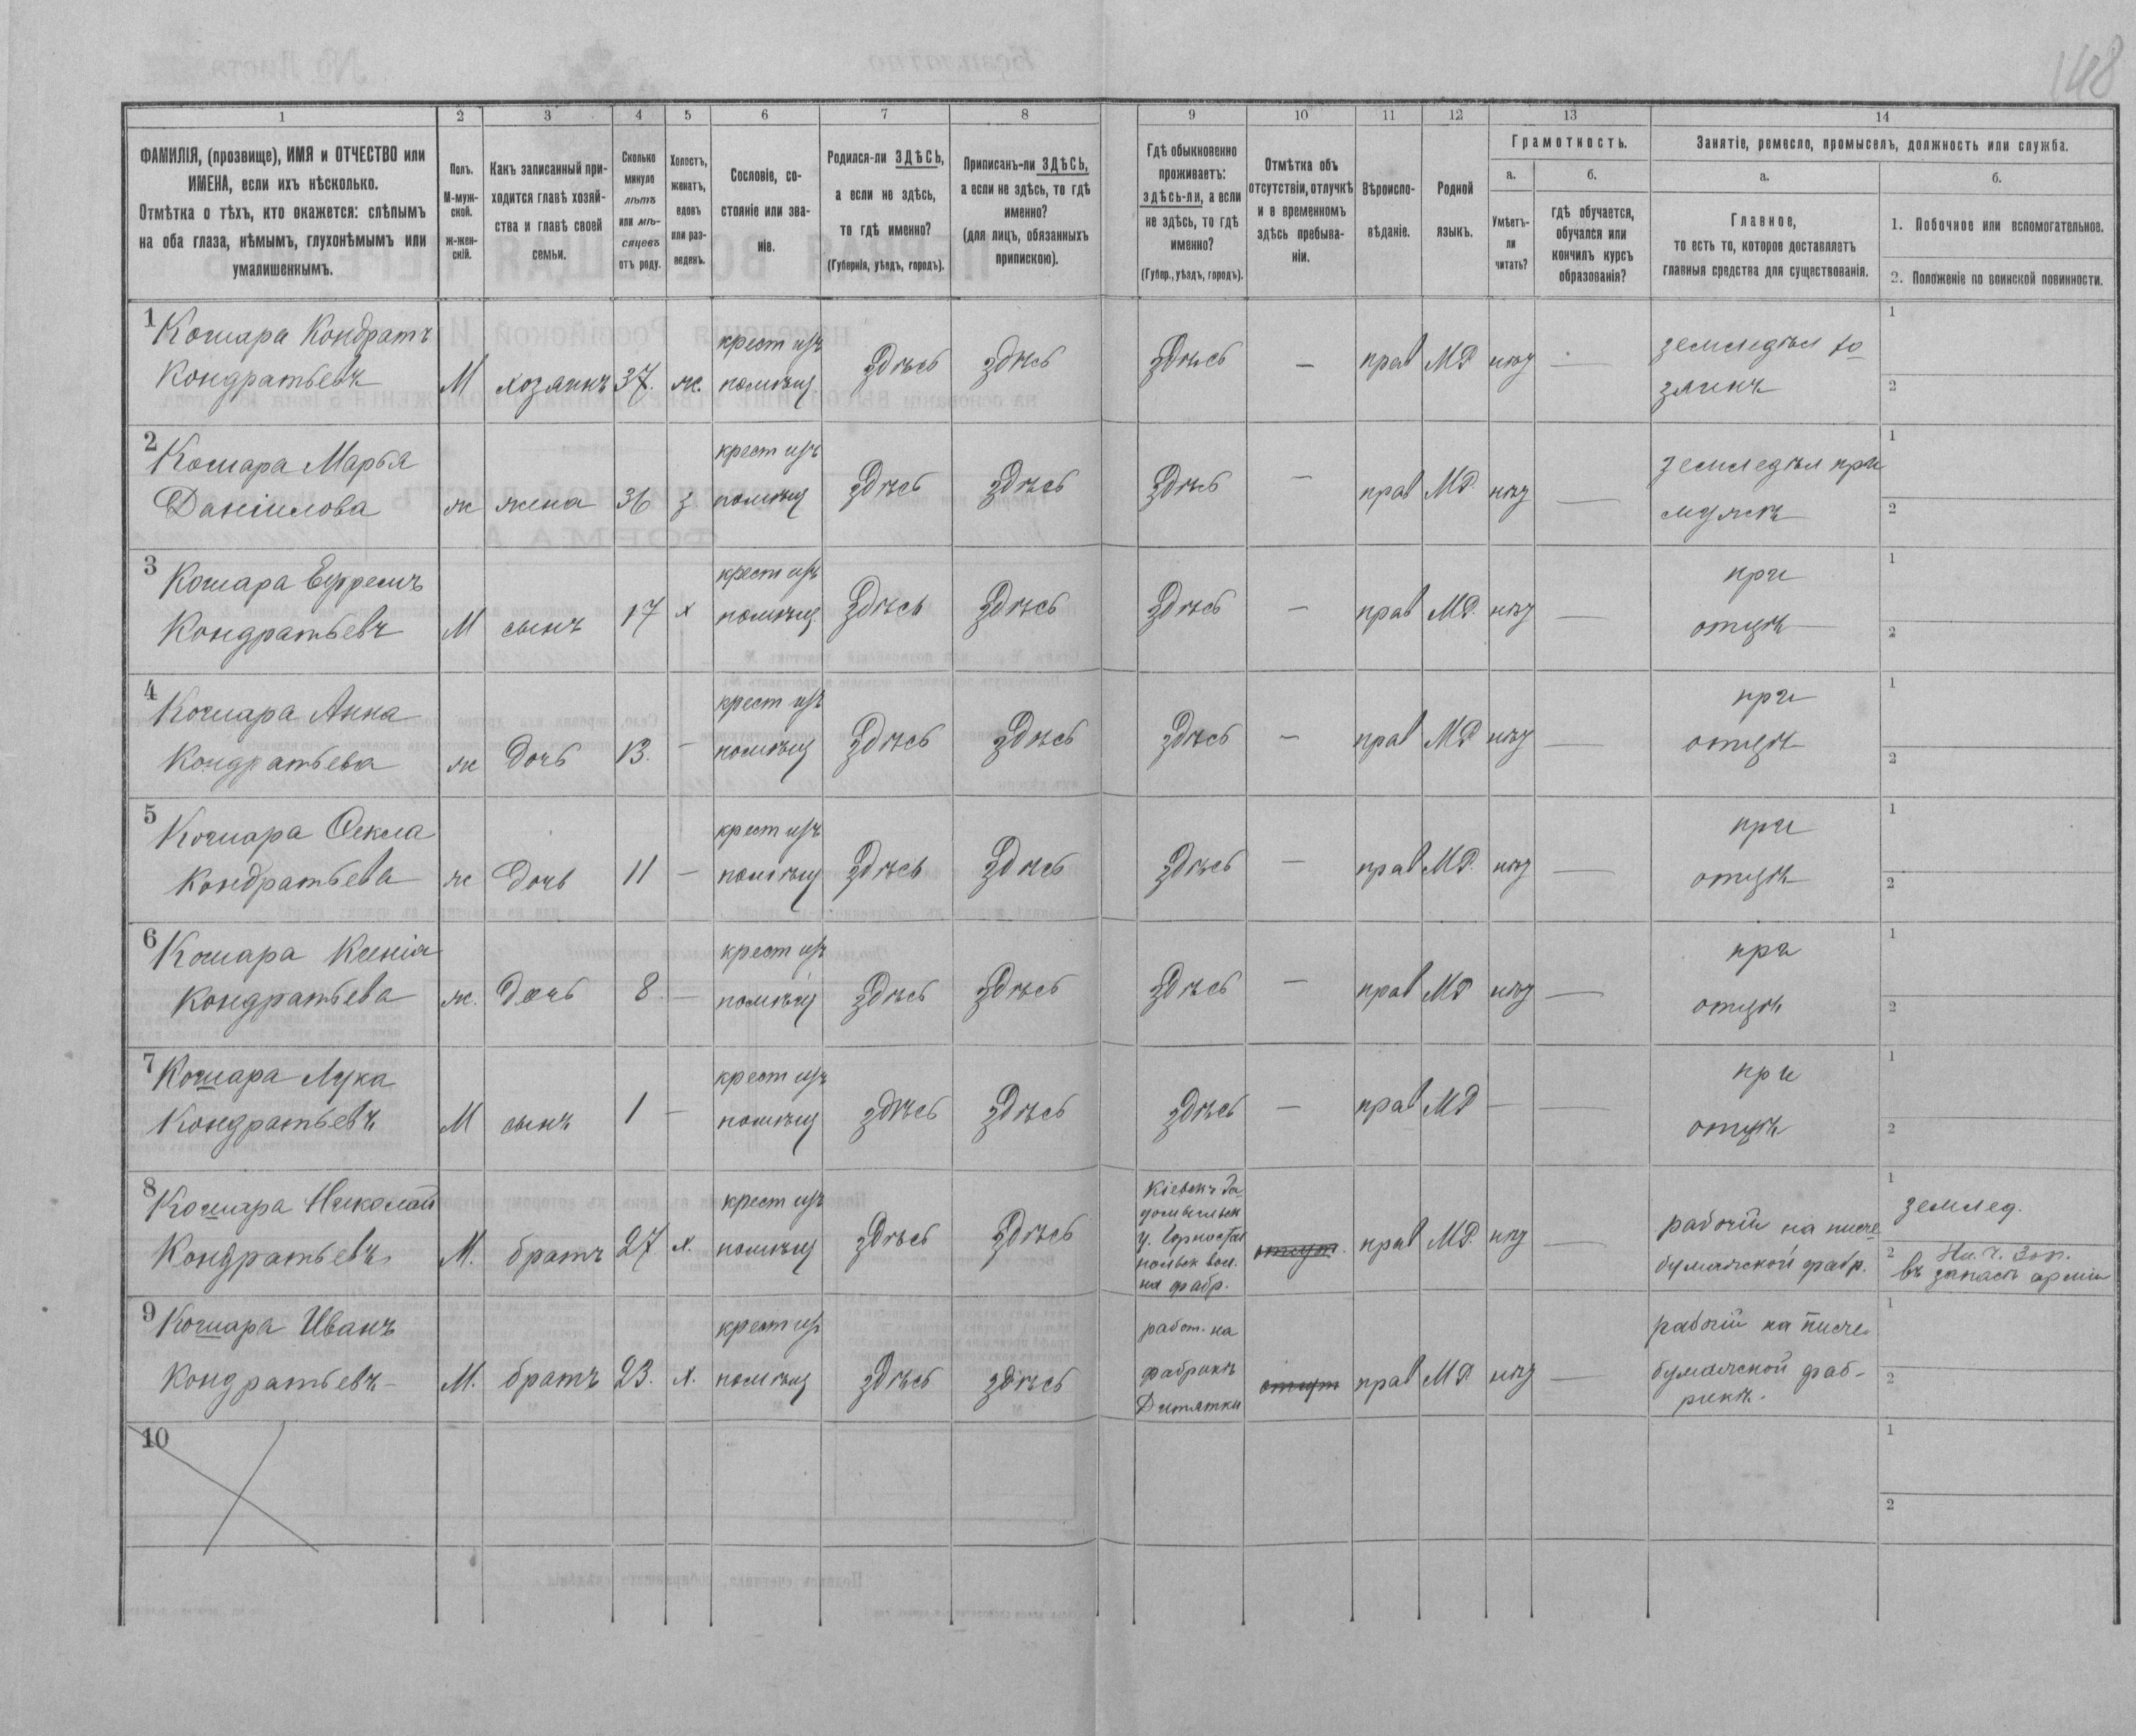 148
1 2 3 4 5 6 7 8 9 10 11 12 13 14
ФАМИЛІЯ, (прозвище), ИМЯ и ОТЧЕСТВО или
ИМЕНА, если ихъ нѣсколько.
Отмѣтка о тѣхъ, кто окажется: слѣпымъ
на оба глаза, нѣмымъ, глухонѣмымъ или
умалишеннымъ.
Полъ.
М-муж-
ской.
ж-жен-
скій.
Какъ записанный при-
ходится главѣ хозяй-
ства и главѣ своей
семьи.
Сколько
минуло
лѣтъ
или мѣ-
сяцевъ
отъ роду.
Холостъ,
женатъ,
вдовъ
или раз-
веденъ.
Сословіе, со-
стояніе или зва-
ніе.
Родился-ли ЗДѢСЬ,
а если не здѣсь,
то гдѣ именно?
(Губернія, уѣздъ, городъ).
Приписанъ-ли ЗДѢСЬ,
а если не здѣсь, то гдѣ
именно?
(для лицъ, обязанныхъ
припискою).
Гдѣ обыкновенно
проживаетъ:
здѣсь-ли, а если
не здѣсь, то гдѣ
именно?
(Губер., уѣздъ, городъ).
Отмѣтка объ
отсутствіи, отлучкѣ
и о временномъ
здѣсь пребыва-
ніи.
Вѣроиспо-
вѣданіе.
Родной
языкъ.
Грамотность.
а.
Умѣетъ-
ли
читать?
б.
гдѣ обучается,
обучался или
кончилъ курсъ
образованія?
Занятіе, ремесло, промыселъ, должность или служба.
а.
Главное,
то есть то, которое доставляетъ
главныя средства для существованія.
б.
1. Побочное или вспомогательное.
2. Положеніе по воинской повинности.
1 Кошара Кондратъ
Кондратьевъ М хозяинъ 37. ж. крест изъ
помѣщ здѣсь здѣсь здѣсь — прав МР нѣт — земледѣл хо
зяинъ 1
2
2 Кошара Марья
Даніилова ж жена 36 з крест изъ
помѣщ здѣсь здѣсь здѣсь — прав МР. нѣт — земледѣл при
мужѣ 1
2
3 Кошара Ефремъ
Кондратьевъ М сынъ 17 х крест изъ
помѣщ здѣсь здѣсь здѣсь — прав МР. нѣт — при
отцѣ 1
2
4 Кошара Анна
Кондратьева ж дочь 13. — крест изъ
помѣщ здѣсь здѣсь здѣсь — прав МР нѣт — при
отцѣ 1
2
5 Кошара Фекла
Кондратьева ж дочь 11 — крест изъ
помѣщ здѣсь здѣсь здѣсь — прав МР. нѣт — при
отцѣ 1
2
6 Кошара Ксенія
Кондратьева ж. дочь 8. — крест изъ
помѣщ здѣсь здѣсь здѣсь — прав МР нѣт — при
отцѣ 1
2
7 Кошара Лука
Кондратьевъ М сынъ 1 — крест изъ
помѣщ здѣсь здѣсь здѣсь — прав МР — — при
отцѣ 1
2
8 Кошара Николай
Кондратьевъ М. братъ 27 х. крест изъ
помѣщ здѣсь здѣсь Кіевск Ра
домысльск
у. Горностай
польск вол.
на фабр. прав МР. нѣт — рабочій на писче
бумажской фабр. 1 землед.
2 въ запасѣ арміи
9 Кошара Иванъ
Кондратьевъ М. братъ 23. х. крест из
помѣщ здѣсь здѣсь работ. на
фабрикѣ
Дитятки прав МР нѣт — рабочій на писче
бумажской фаб-
рикѣ. 1
2
10
1
2